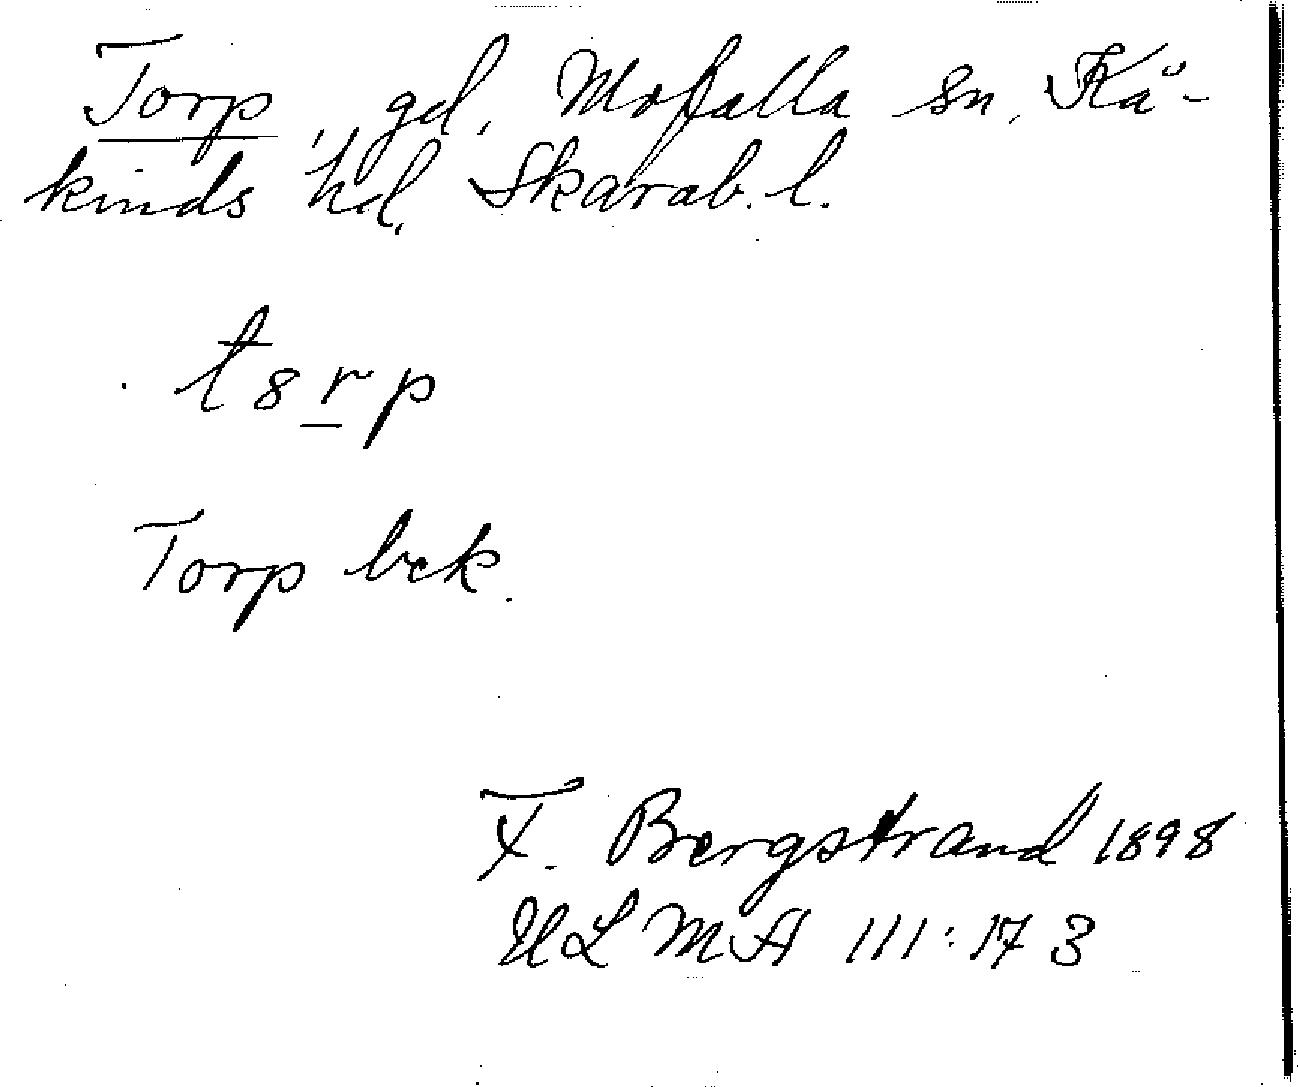 Torp, gd, Mofalla sn, Kå-
kinds hd, Skarab. l.
t8rp
Torp bck.
F. Bergstrand 1898
ULMA 111:173